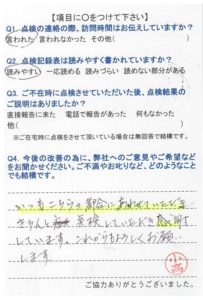 【項目に○をつけて下さい】
Q1. 点検の連絡の際、訪問時間はお伝えしていますか?
言われた 言われなかった その他( )
Q2. 点検記録表は読みやすく書かれていますか?
読みやすい 一応読める 読みづらい 読めない部分がある
Q3. ご不在時に点検させていただいた後、点検結果の
ご説明はありましたか?
直接報告に来た 電話で報告があった 何もなかった
他( )
※ご在宅時に点検をさせて頂いている場合は無回答で結構です。
Q4. 今後の改善の為に、弊社へのご意見やご希望など
をお聞かせください。ご不満やお叱りなど、どのようなこと
でも結構です。
いつもこちらの都合にあわせていただき
きちんと 点検していただき感謝
しています。これからもよろしくお願い
します。
小高
ご協力ありがとうございました。